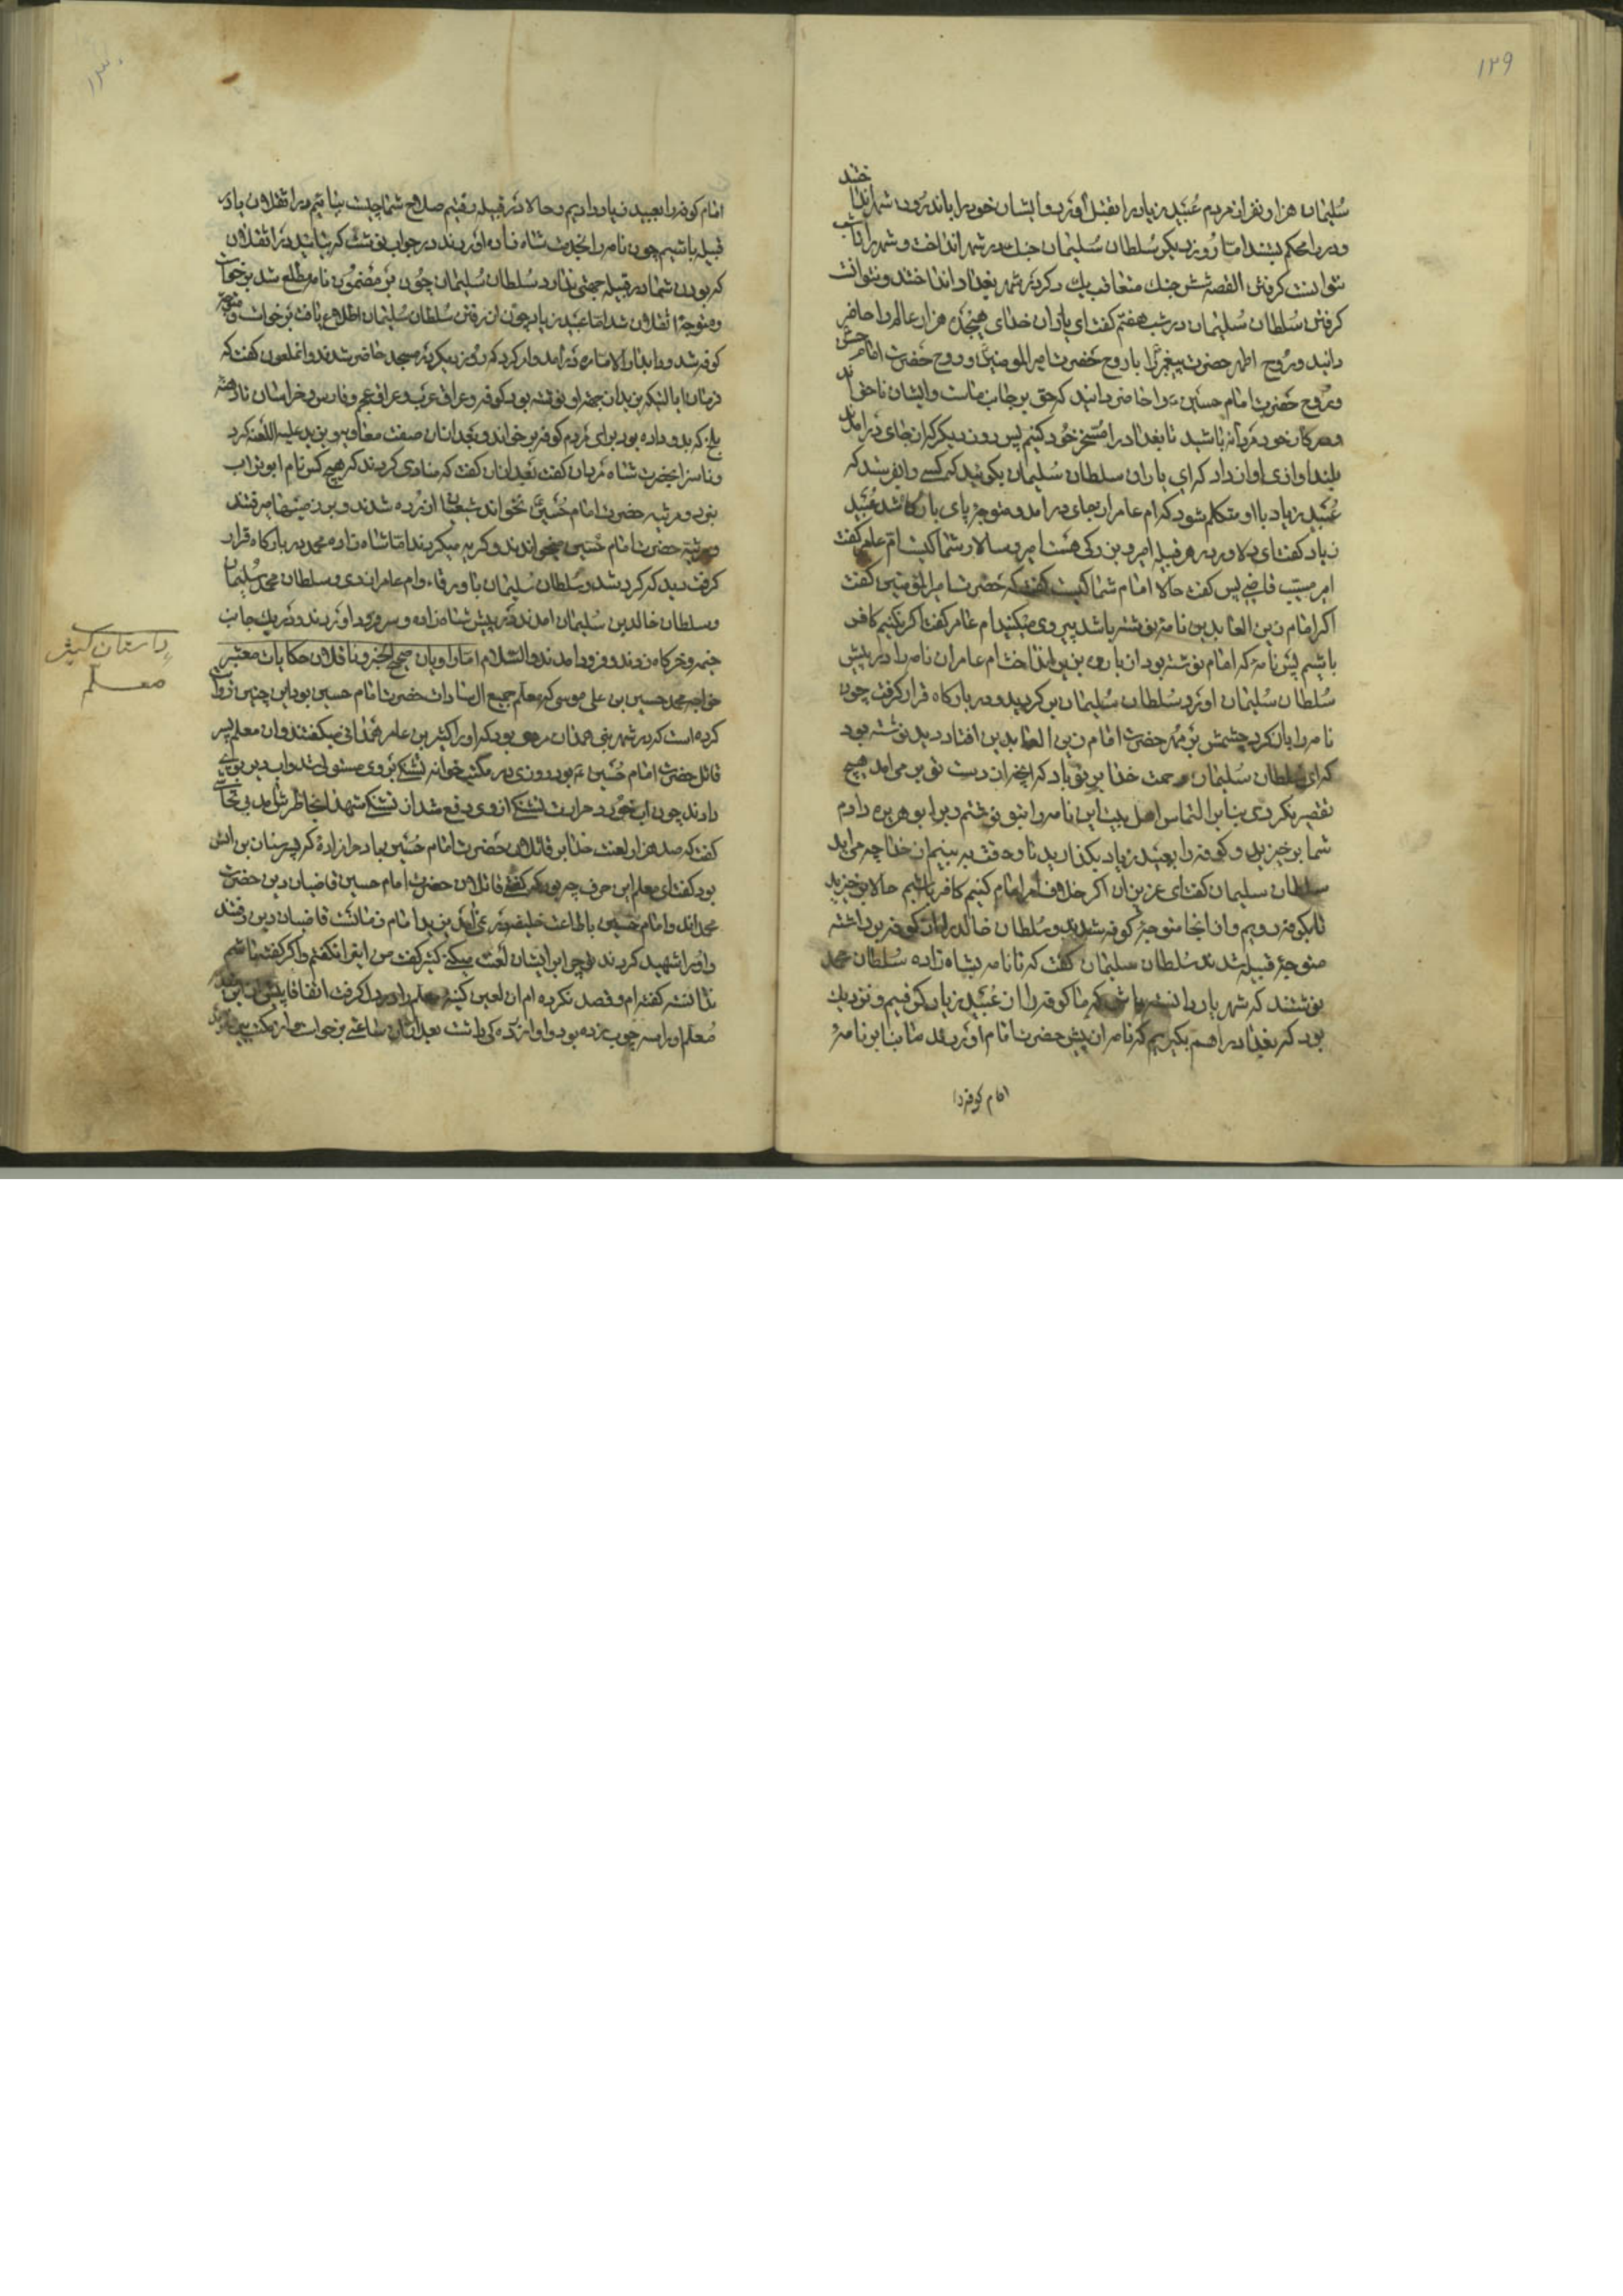 ۱۲۹
سلیمان هزار نفر از مردم عبید زیاد را بقتل آورد و ایشان خود را باندرون شهر انداختند
و در را محکم بستند اما روز دیگر سلطان سلیمان جنک در شهر انداخت و شهر را
نتوانست کرفتن القصه شش جنک متعاقب یك دیکر در شهر بغداد انداختند و نتوانست
کرفتن سلطان سلیمان در شب هفتم کفت ای یاران خدای هیجده هزار عالم را حاضر
دانید و روح اطهر حضرت پیغمبر را با روح حضرت امیر المومنین و روح حضرت امام حسن
و روح حضرت امام حسین را حاضر دانید که حق بر جانب ماست و ایشان ناحق اند
و در کار خود مردانه باشید تا بغداد را مسخر خود کنیم پس روز دیکر که از جای درامدند
بلند اوازی اواز داد که ای یاران سلطان سلیمان بکوئید که کسی را بفرستد که
عبید زیاد با او متکلم شود که ام عامر از جای درامد و متوجه پای بارکاه شد عبید
زیاد کفت ای دلاور در هر قبیله امیر و بزرکی هست امیر و سالار شما کیست ام عامر کفت
امیر مسیب قاضی پس کفت حالا امام شما کیست کفت که حضرت امیر المومنین کفت
اکر امام زین العابدین نامه نوشته باشد پیروی میکنید ام عامر کفت اکر نکنیم کافر
باشیم پس نامه که امام نوشته بود از باروی بزیر انداخت ام عامر ان نامه را در پیش
سلطان سلیمان اورد سلطان سلیمان بر کردید و در بارکاه قرار کرفت چون
نامه را باز کرد چشمش بر مهر حضرت امام زین العابدین افتاد دید نوشته بود
که ای سلطان سلیمان رحمت خدا بر تو باد که انچه از دست تو بر می امد هیچ
تقصیر نکردی بنابر التماس اهل بیت این نامه را بتو نوشتم و برا بو هریره دادم
شما برخیزید و کوفه را بعبید زیاد بکذارید تا وقت به بینیم از خدا چه می اید
سلطان سلیمان کفت ای عزیزان اکر خلاف امر امام کنیم کافر باشیم حالا برخیزید
تا بکوفه رویم و از انجا متوجه کوفه شدند و سلطان خالد را از کوفه برداشته
متوجه قبیله شدند سلطان سلیمان کفت که تا نامه بشاه زاده سلطان محمد
نوشتند که شهریار دانسته باش که ما کوفه را از عبید زیاد کرفتیم و نزدیك
بود که بغداد را هم بکیریم که نامه از پیش حضرت امام اوردند ما بنابر نامه
امام کوفه را
۱۳۰
امام کوفه را بعبید زیاد دادیم و حالا در قبیله رفتیم صلاح شما چیست بیائیم در اتقلان یا در
قبیله باشیم چون نامه را بخدمت شاه زاده اوردند در جواب نوشت که بیائید در اتقلان
که بودن شما در قبیله جهتی ندارد سلطان سلیمان چون بر مضمون نامه مطلع شد برخواست
و متوجه اتقلان شد اما عبید زیاد چون از رفتن سلطان سلیمان اطلاع یافت برخواست و متوجه
کوفه شد و در دار الاماره درامد و امر کرد که روز دیکر در مسجد حاضر شدند و ان ملعون کفت که
که بدو داده بود برای مردم کوفه بر خواند و بعد از ان صفت معاویه و یزید علیه اللعنه کرد
و ناسزا بحضرت شاه مردان کفت بعد از ان کفت که منادی کردند که هیچ کس نام ابوتراب
نبرد و مرثیه حضرت امام حسین نخواند شیعیان ازرده شدند و بر زمینها میرفتند
و مرثیه حضرت امام حسین میخواندند و کریه میکردند اما شاه زاده محمد در بارکاه قرار
کرفت دید که کرد شد و سلطان سلیمان با ورقاء و ام عامر ازدی و سلطان محمد سلیمان
و سلطان خالد بن سلیمان امدند در پیش شاه زاده و سر فرود اوردند و در یك جانب
خیمه و خرکاه زدند و فرود امدند والسلام اما راویان صحیح الخبر و ناقلان حکایات معتبر
خواجه محمد حسین بن علی موسی که معلم جمیع ال سادات حضرت امام حسین بود این چنین روایت
کرده است که در شهر بنی همدان مردی بود که او را کثیر بن عامر همدانی میکفتند و ان معلم پسر
قاتل حضرت امام حسین ع بود روزی در مکتب خانه تشنکی بر وی مستولی شد اب بدین وی
دادند چون اب خورد و حرارت تشنکی از وی دفع شد از تشنکی شهدا بخاطرش امد بی تحاشی
کفت که صد هزار لعنت خدا بر قاتلان حضرت امام حسین باد حرامزادهٔ که پسر سنان بن انس
بود کفت ای معلم این حرف چه بود که کفتی قاتلان حضرت امام حسین قاضیان دین حضرت
محمد اند و امام حسین با طاعت خلیفه در نمی امد یزید امام زمانست قاضیان دین رفتند
و او را شهید کردند تو چرا بر ایشان لعنت میکنی کثیر کفت من اینرا نکفتم و اکر کفته باشم
ندانسته کفته ام و قصد نکرده ام ان لعین کینه معلم را در دل کرفت اتفاقا پیش از این
معلم او را سه چوب زده بود و او ازرده کی داشت بعد از ان ساعتی برخواست و از مکتب بیرون
داستان کثیر
معلم